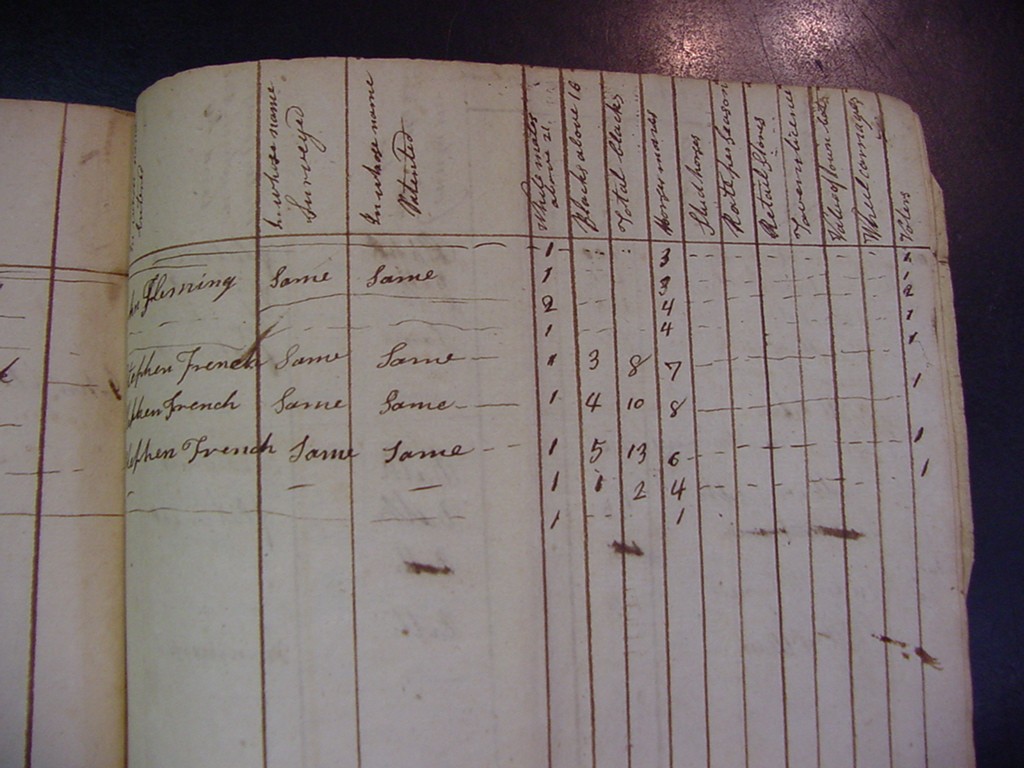 entered
In whose name Surveyed
In whose name Patented
White males above 21
Blacks above 16
Total blacks
Horses mares
Stud horses
Rate per season
Retail Stores
Tavern licences
Value of town lots
Wheel carriages
Voters
1 3 1
Fleming Same Same 1 3 1
2 4 2
1 4 1
Stephen French Same Same 1 3 8 7 1
Stephen French Same Same 1 4 10 8 1
Stephen French Same Same 1 5 13 6 1
— — 1 1 2 4 1
1 1